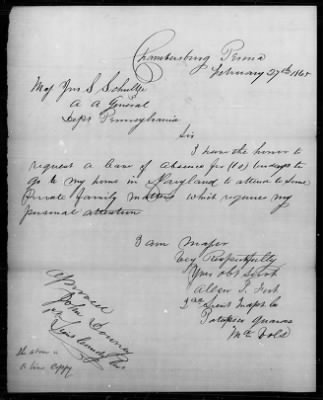 Chambersburg Penna
February 27th 1865
Maj Jno S Schultze
A A General
Dept Pennsylvania
Sir
I have the honor to
request a leave of absence for (10) ten days to
go to my home in Maryland to attend to some
Private family matters which requires my
personal attention
I am Major
Very Respectfully
Your obt Servt
Allen P.
1st Lieut Capt Co
Patapsco Guards
Md Vols
approved
John
Lieut Comdg
the above is
a true copy